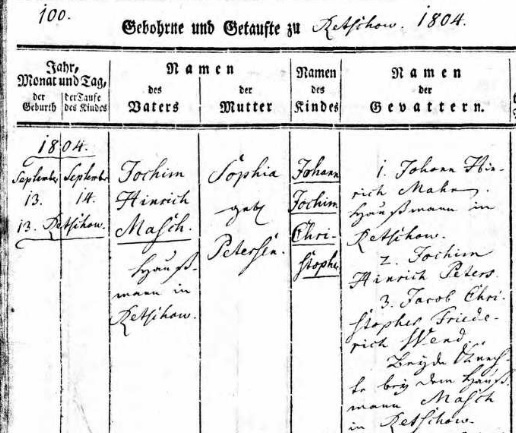 100.
Gebohrne und Getaufte zu Retschow. 1804.
Jahr,
Monat und Tag,
der Geburth
der Taufe des Kindes
Namen
des
Vaters
der
Mutter
Namen
des
Kindes
Namen
der
Gevattern.
1804.
September
13.
13. Retschow.
September
14.
Jochim
Hinrich
Masch.
Hauß-
mann in
Retschow.
Sophia
geb
Petersen.
Johann
Jochim
Chri-
stopher
1. Johann Hin-
rich Mahn,
Haußmann in
Retschow.
2. Jochim
Hinrich Peters
3. Jacob Chri-
stopher Friede-
rich Wend.
Beyde
bey dem Hauß-
mann Masch
in Retschow.